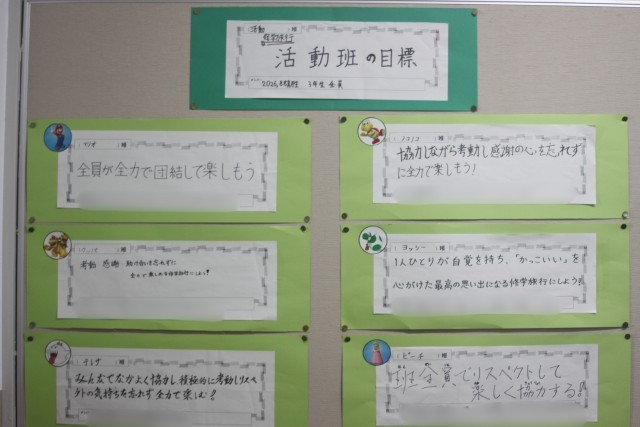 活動 様
修学旅行
活動班の目標
3年生 全員
マリオ 様
全員が全力で団結して楽しもう
ノコノコ 様
協力しながら考動し感謝の心を忘れず
に全力で楽しもう!
クッパ 様
考動 感謝 助け合いを忘れずに
全力で楽しめる修学旅行にしよう!
ヨッシー 様
1人ひとりが自覚を持ち、「かっこいい」を
心がけた最高の思い出になる修学旅行にしよう!
テレサ 様
みんなでなかよく協力し、積極的に考動しリスペ
クトの気持ちを忘れず全力で楽しむ!
ピーチ 様
班全員でリスペクトして
楽しく協力する!